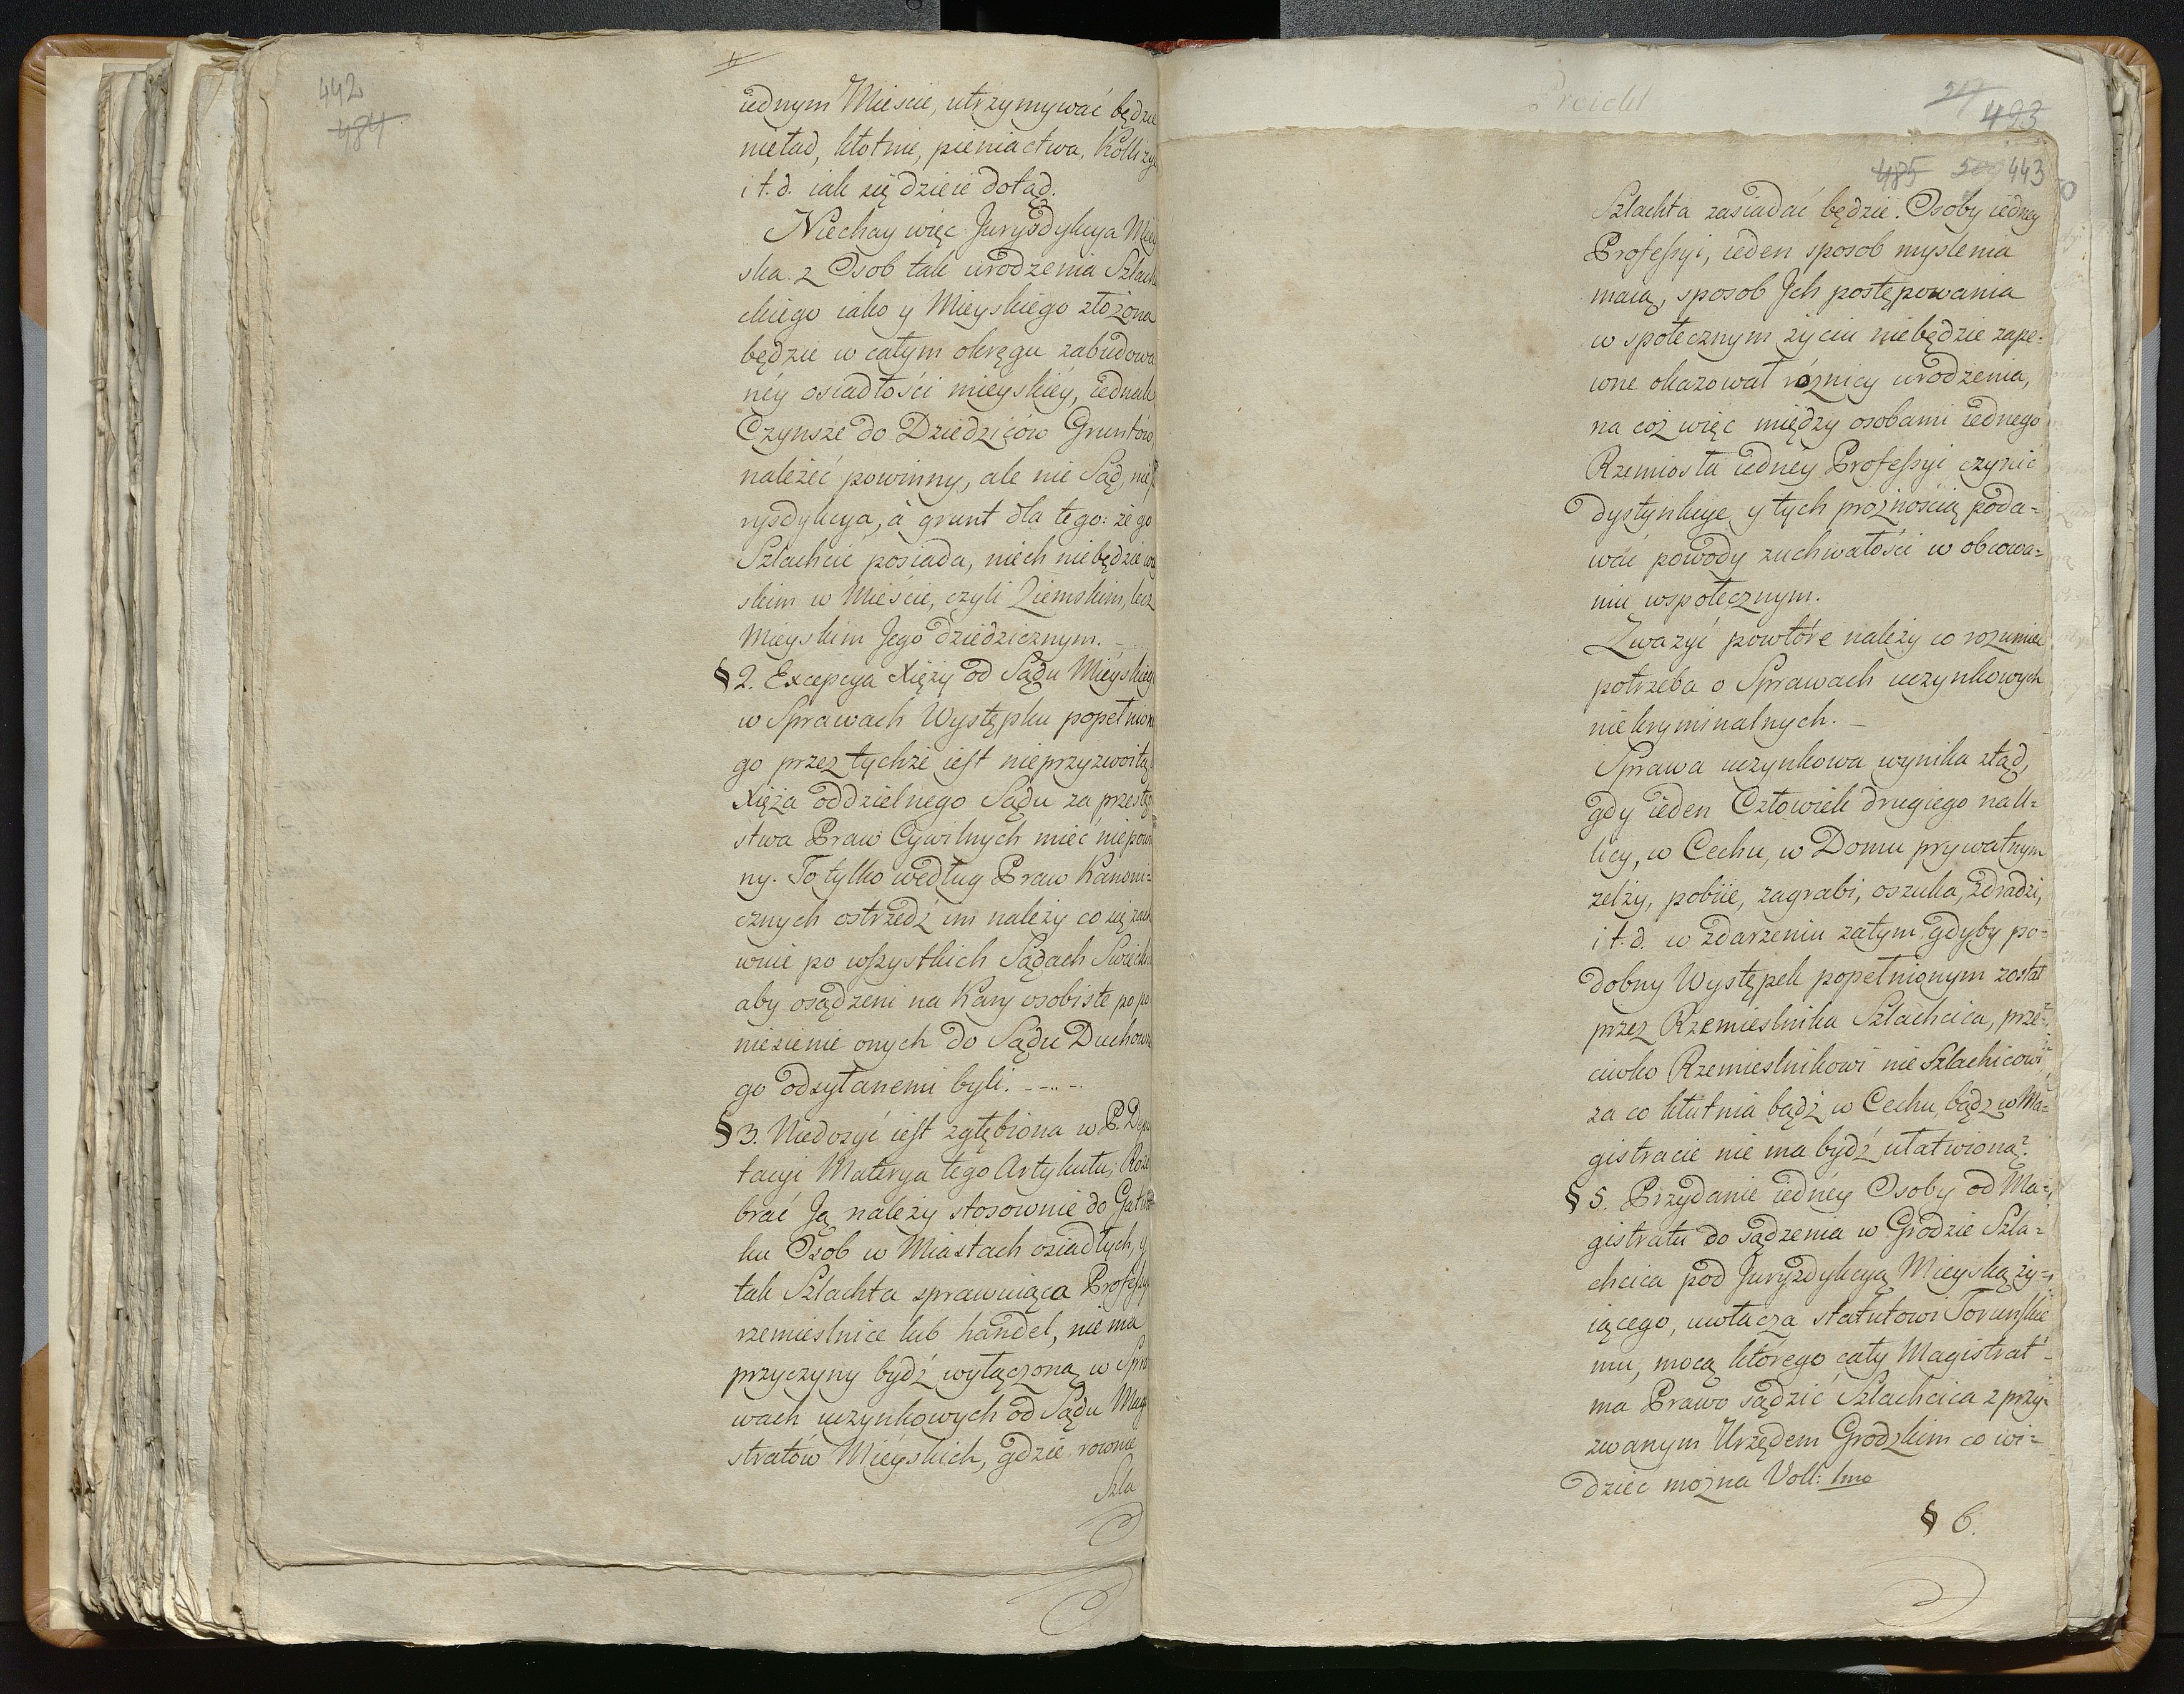 442
484
iednym Mieście, utrzymywać będzie
nieład, kłotnie, pieniactwa,
i t. d. iak się dzieie dotąd.
Niechay więc Jurysdykcya Miey
ska z Osob tak urodzenia Szlach
ckiego iako y Mieyskiego złożona
będzie w całym okręgu zabudowa
néy osiadłości mieyskiéy, iednak
Czynsze do Dziedziców Gruntów
należeć powinny, ale nie Sąd, nie
rysdykcya, à grunt dla tego: że go
Szlachcic posiada, niech niebędzie
skim w Mieście, czyli Ziemskim, lecz
Mieyskim Jego dziedzicznym.
§ 2. Excepcya Xięży od Sądu Mieyskiey
w Sprawach Występku popełnione
go przez tychże iest nieprzyzwoitą
Xięża oddzielnego Sądu za przestęp
stwa Praw Cywilnych mieć niepowin
ny. To tylko według Praw Kanoni=
cznych ostrzedz im należy co się zacho
wuie po wszystkich Sądach Swieckich
aby osądzeni na Kary osobiste po po
niesienie onych do Sądu Duchowne
go odsyłanemi byli. - - - - -
§ 3. Niedosyć iest zgłębiona w P. Depu
tacyi Materya tego Artykułu; Roze
brać Ją należy stosownie do Gatun
ku Osob w Miastach osiadłych, y
tak Szlachta sprawuiąca Professye
rzemieslnice lub handel, nie ma
przyczyny bydź wyłączoną w Spra
wach uczynkowych od Sądu Magi
stratów Mieyskich, gdzie rownie
Szla
493
485 443
Szlachta zasiadać będzie. Osoby iedney
Professyi, ieden sposob myslenia
maią, sposob Jch postępowania
w społecznym życiu niebędzie zape=
wne okazował roznicy urodzenia,
na coż więc między osobami iednego
Rzemiosła iedney Professyi czynić
dystynkcye y tych prożnością poda=
wać powody zuchwałości w obcowa=
niu wspołecznym.
Zważyć powtóre należy co rozumieć
potrzeba o Sprawach uczynkowych
niekryminalnych. -
Sprawa uczynkowa wynika ztąd,
gdy ieden Człowiek drugiego na U=
licy, w Cechu, w Domu prywatnym
zelży, pobiie, zagrabi, oszuka, zdradzi,
i t. d. w zdarzeniu zatym gdyby po=
dobny Występek popełnionym został
przez Rzemieslnika Szlachcica, prze=
ciwko Rzemieslnikowi nie Szlachcicowi
za co kłutnia bądź w Cechu, bądz w Ma=
gistracie nie ma bydź ułatwioną?
§ 5. Przydanie iednéy Osoby od Ma=
gistratu do sądzenia w Grodzie Szla=
chcica pod Juryzdykcyą Mieyską ży=
iącego, uwłacza statutowi Toruńskie
mu, mocą którego cały Magistrat
ma Prawo sądzić Szlachcica z przy=
zwanym Urzędem Grodzkim co wi=
dzieć można Voll: Imo
§ 6.